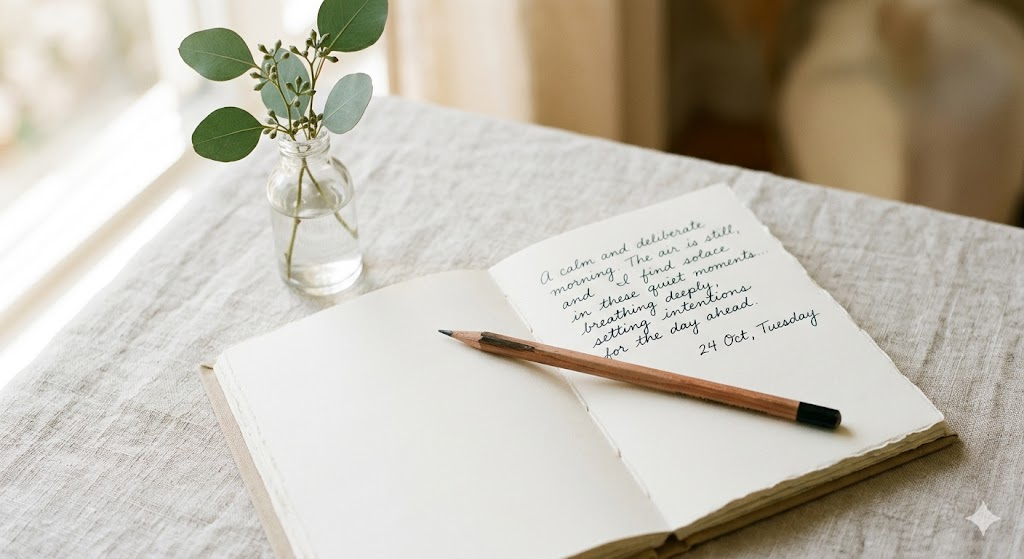 A calm and deliberate
morning. The air is still,
and I find solace
in these quiet moments...
breathing deeply,
setting intentions
for the day ahead.
24 Oct, Tuesday